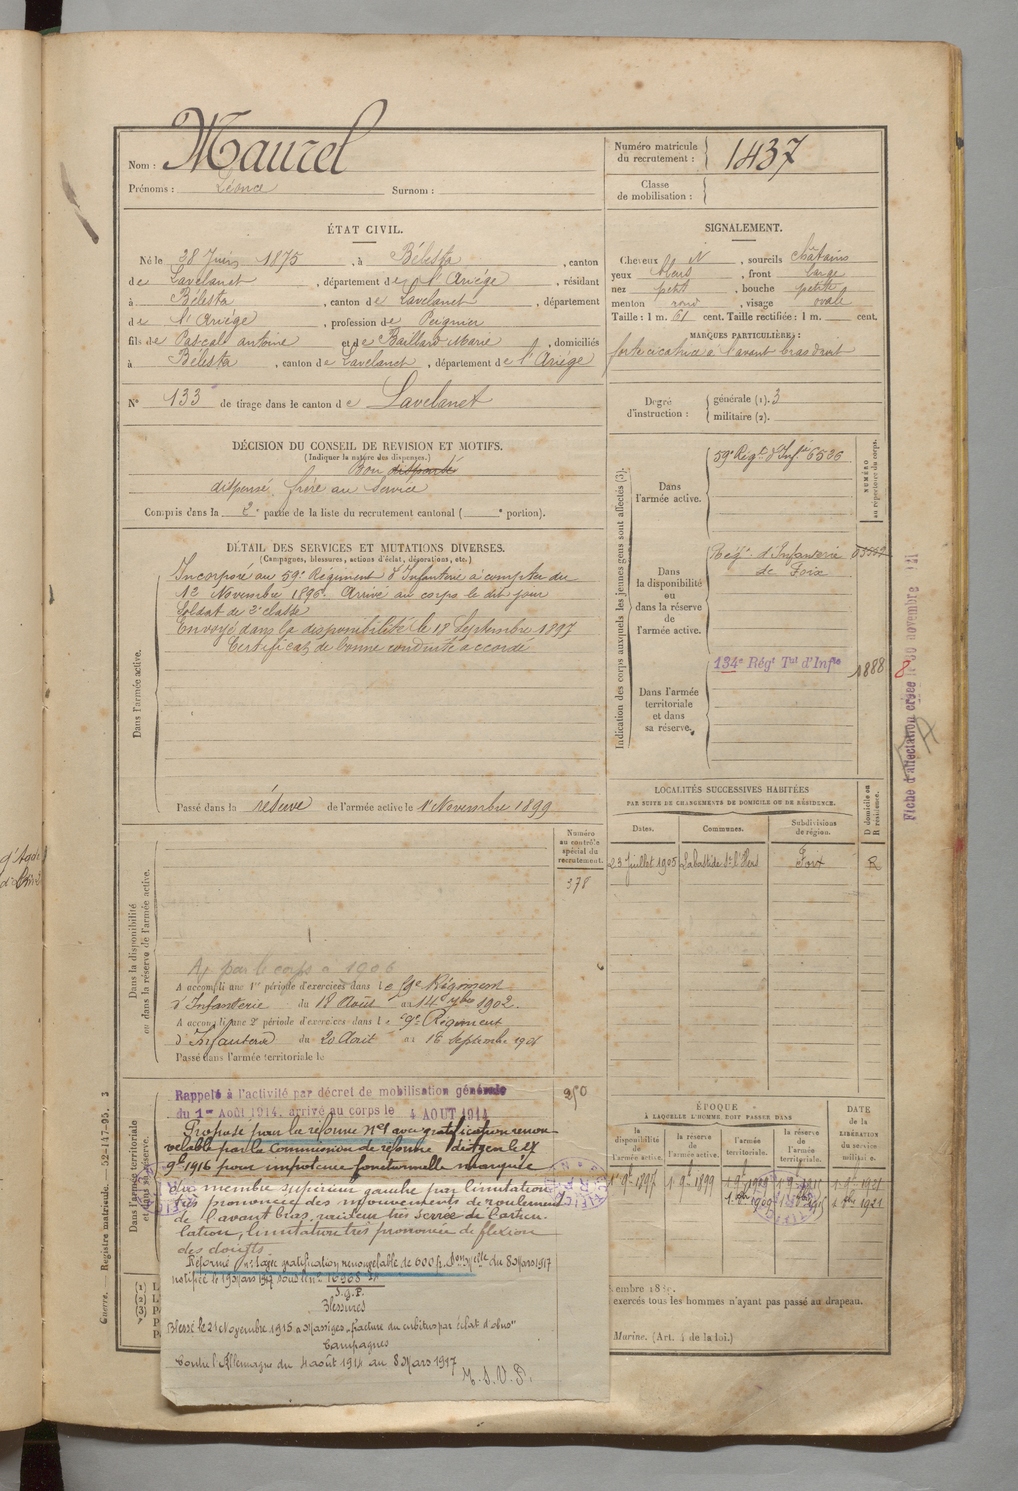 Nom : Maurel
Prénoms : Léonce Surnom :
Numéro matricule du recrutement : 1437
Classe de mobilisation :
ÉTAT CIVIL.
Né le 28 Juin 1875, à Bélesta, canton
de Lavelanet, département de l'Ariége, résidant
à Bélesta, canton de Lavelanet, département
de l'Ariége, profession de Peignier
fils de Pascal antoine et de Baillard Marie, domiciliés
à Bélesta, canton de Lavelanet, département de l'Ariége
N° 133 de tirage dans le canton de Lavelanet
SIGNALEMENT.
Cheveux N, sourcils châtains
yeux bleus, front large
nez petit, bouche petite
menton rond, visage ovale
Taille : 1 m. 61 cent. Taille rectifiée : 1 m. cent.
MARQUES PARTICULIÈRES :
forte cicatrice à l'avant bras droit
Degré d'instruction : générale (1). 3
militaire (2).
DÉCISION DU CONSEIL DE REVISION ET MOTIFS.
(Indiquer la nature des dispenses.)
Bon
dispensé frère au Service
Compris dans la 2e partie de la liste du recrutement cantonal ( e portion).
DÉTAIL DES SERVICES ET MUTATIONS DIVERSES.
(Campagnes, blessures, actions d'éclat, décorations, etc.)
Dans l'armée active.
Incorporé au 59e Régiment d'Infanterie à compter du
1er Novembre 1896. Arrivé au corps le dit jour
Soldat de 2e classe
Envoyé dans la disponibilité le 18 Septembre 1897
Certificat de bonne conduite accordé
Passé dans la réserve de l'armée active le 1er Novembre 1899
Indication des corps auxquels les jeunes gens sont affectés (3).
NUMÉRO au répertoire du corps.
Dans l'armée active.
59e Régt d'Infie 6536
Dans la disponibilité ou dans la réserve de l'armée active.
Régt d'Infanterie
de Foix
Dans l'armée territoriale et dans sa réserve.
134e Régt Tal d'Infie 1888
8
Fiche d'affectation créée le 30 novembre
LOCALITÉS SUCCESSIVES HABITÉES
PAR SUITE DE CHANGEMENTS DE DOMICILE OU DE RÉSIDENCE.
Dates. Communes. Subdivisions de région. D domicile ou R résidence.
23 Juillet 1905 Labastide s. l'Hers Foix R
Dans la disponibilité ou dans la réserve de l'armée active.
Numéro au contrôle spécial du recrutement.
378
Aj par le corps à 1906
A accompli une 1re période d'exercices dans le 59e Régiment
d'Infanterie du 18 Août au 14 7bre 1902.
A accompli une 2e période d'exercices dans le 59e Régiment
d'Infanterie du 20 Août au 16 Septembre
Passé dans l'armée territoriale le
Dans l'armée territoriale et dans sa réserve.
250
Rappelé à l'activité par décret de mobilisation générale
du 1er Août 1914, arrivé au corps le 4 AOUT 1914
Proposé pour la réforme n°1 avec gratification renou-
velable par la Commission de réforme
9bre 1916 pour impotence fonctionnelle marquée
du membre supérieur gauche par limitation
très prononcée des mouvements de roulement
de l'avant bras, raideur très serrée de l'articu-
lation, limitation très prononcée de flexion
des doigts
Réformé n°1 avec gratification renouvelable de 600 f. Don Mlle du 8 Mars 1917
notifiée le 19 Mars 1917 sous le n°
S.G.P.
Blessures
Blessé le 21 Novembre 1915 à Massiges "fracture du cubitus par éclat d'obus"
Campagnes
Contre l'Allemagne du 4 août 1914 au 8 Mars 1917
T. S. V. P.
ÉPOQUE
À LAQUELLE L'HOMME DOIT PASSER DANS
la disponibilité de l'armée active. la réserve de l'armée active. l'armée territoriale. la réserve de l'armée territoriale.
DATE de la LIBÉRATION du service militaire.
1er 9bre 1897 1er 9bre 1899 1er 9bre 1909 1er 9bre 1915 1er 9bre 1921
1er 8bre 1909 1er 8bre 1915 1er 8bre 1921
exercés tous les hommes n'ayant pas passé au drapeau.
Marine. (Art. 4 de la loi.)
Guerre. — Registre matricule. — 52-147-95. 3